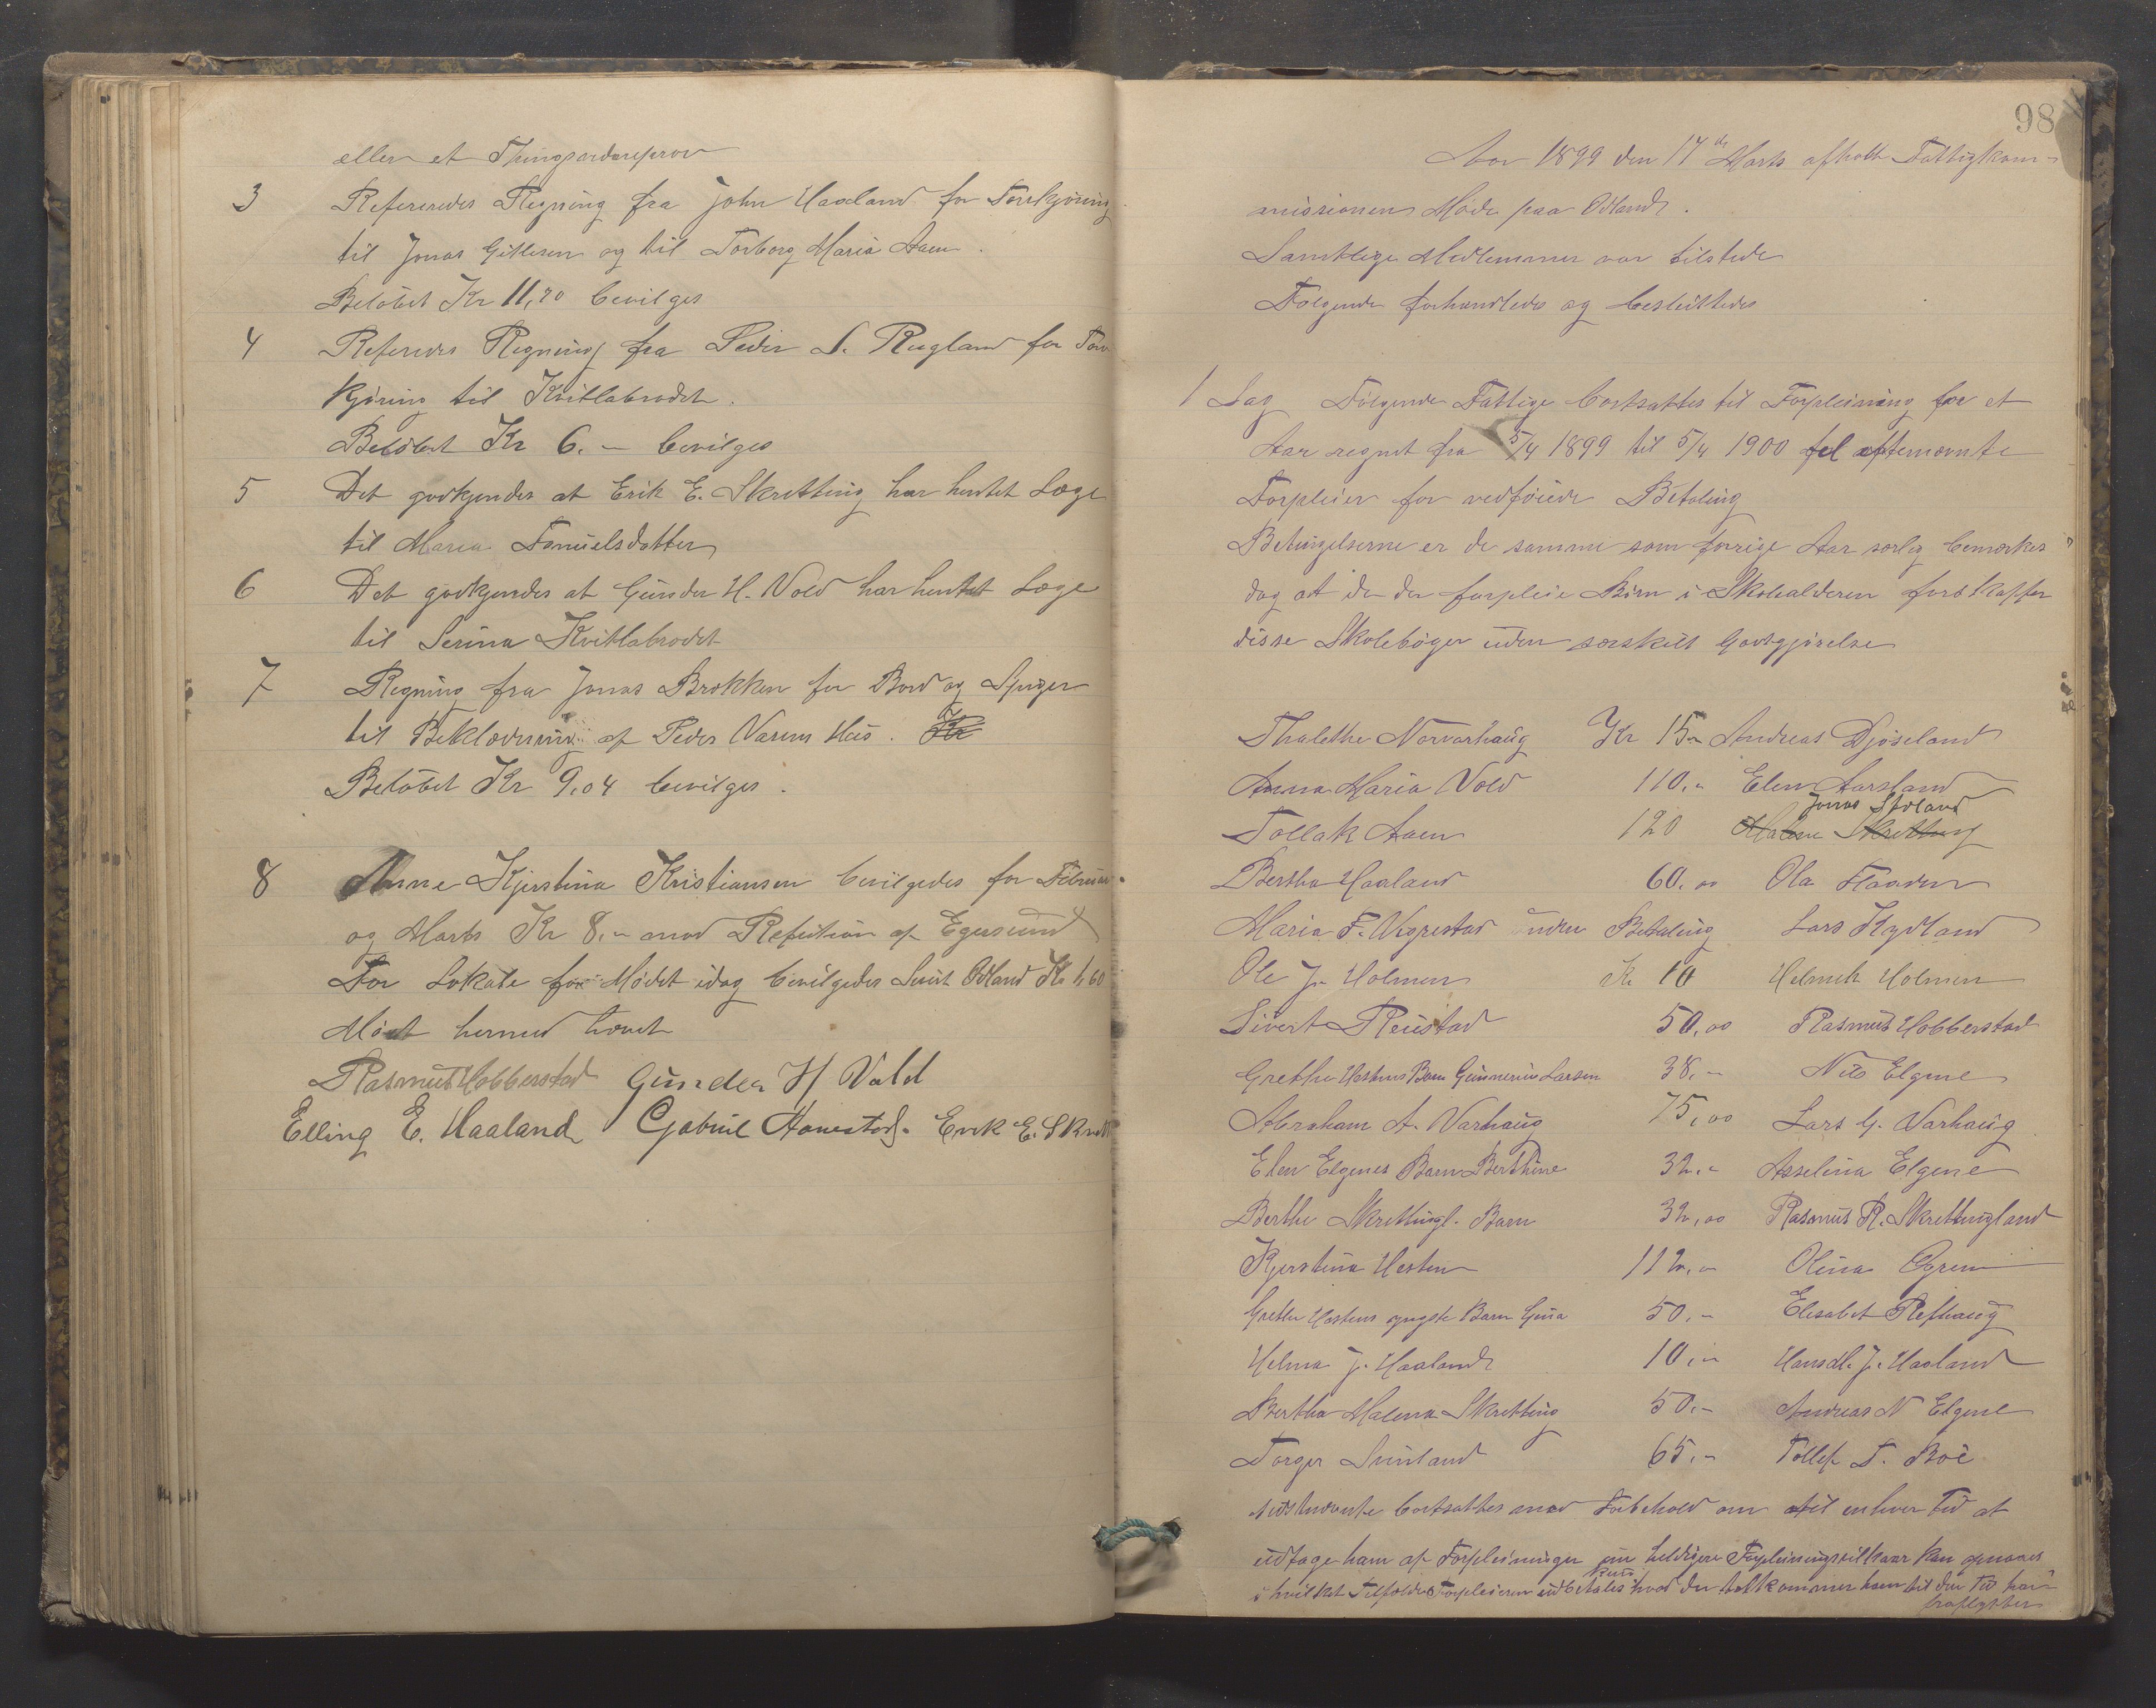 eller et
3 Refereredes Regning fra John Haaland for Torvkjøring
til Jonas Gitlesen og til Torborg Maria Aaen.
Beløbet Kr 11,20 bevilges
4 Refereredes Regning fra Peder S. Rugland for Torv
kjøring til Kvitlabrodet.
Beløbet Kr 6.- bevilges
5 Det godkjendes at Erik E. Skretting har hentet Læge
til Maria Samuelsdatter
6 Det godkjendes at Gunder H. Vold har hentet Læge
til Serina Kvitlabrodet
7 Regning fra Jonas Brokken for Bord og Spiger
til Beklædning af Peder Varens Hus. Kr
Beløbet Kr 9,04 bevilges.
8 Anne Kjerstina Kristiansen bevilgedes for Februar
og Marts Kr 8,- mod Refution af Egersund
For Lokale for Mødet idag bevilgedes Odland Kr 1,60
Mødet hermed hævet
Rasmus Hobberstad Gunder H Vold
Elling E. Haaland Gabriel Aanestad. Erik E. Skrett
98
Aar 1899 den 17de Marts afholdt Fattigkom-
missionen Møde paa Odland.
Samtlige Medlemmer var tilstede
Følgende forhandledes og besluttedes
1 Sag Følgende Fattige bortsattes til Forpleining for et
Aar regnet fra 5/4 1899 til 5/4 1900 til efternævnte
Forpleier for vedføiede Betaling
Betingelserne er de samme som forrige Aar særlig bemærkes
dog at de der forpleie Børn i Skolealderen forskaffer
disse Skolebøger uden særskilt Godtgjørelse
Thalethe Norvarhaug Kr 15.- Andreas Djøseland
Anna Maria Vold 110,- Elen Aarsland
Jonas Stoland
Tollak Aaen 120 Malene Skretting
Bertha Haaland 60,00 Ola Flaaden
Maria F. Vigrestad uden Betaling Lars Kydland
Ole J. Holmen Kr 10 Helmik Holmen
Sivert Reustad 50,00 Rasmus Hobberstad
Grethe Hestnes Barn Gunnerius Larsen 38,- Nils Elgene
Abraham A. Varhaug 75,00 Lars G. Varhaug
Elen Elgenes Barn Berthine 32,- Asselina Elgene
Berthe Skrettingl. Barn 32,00 Rasmus R. Skrettingland
Kjerstina Hestnes 112,00 Olina
Grethe Hestnes yngste Barn Gina 50,- Elisabet Refhaug
Helma J. Haaland 10,00 Hans J. Haaland
Bertha Malena Skretting 50,- Andreas N Elgene
Torger Sunland 65,- Tollef T. Boe
Sidstnævnte bortsattes med Forbehold om til enhver Tid at
udtage ham af Forpleiningen om heldigere Forpleiningsvilkaar kan opnaaes
i hvilket Tilfælde Forpleieren kun udbetales hvad der tilkommer ham til den Tid han
fraflytter